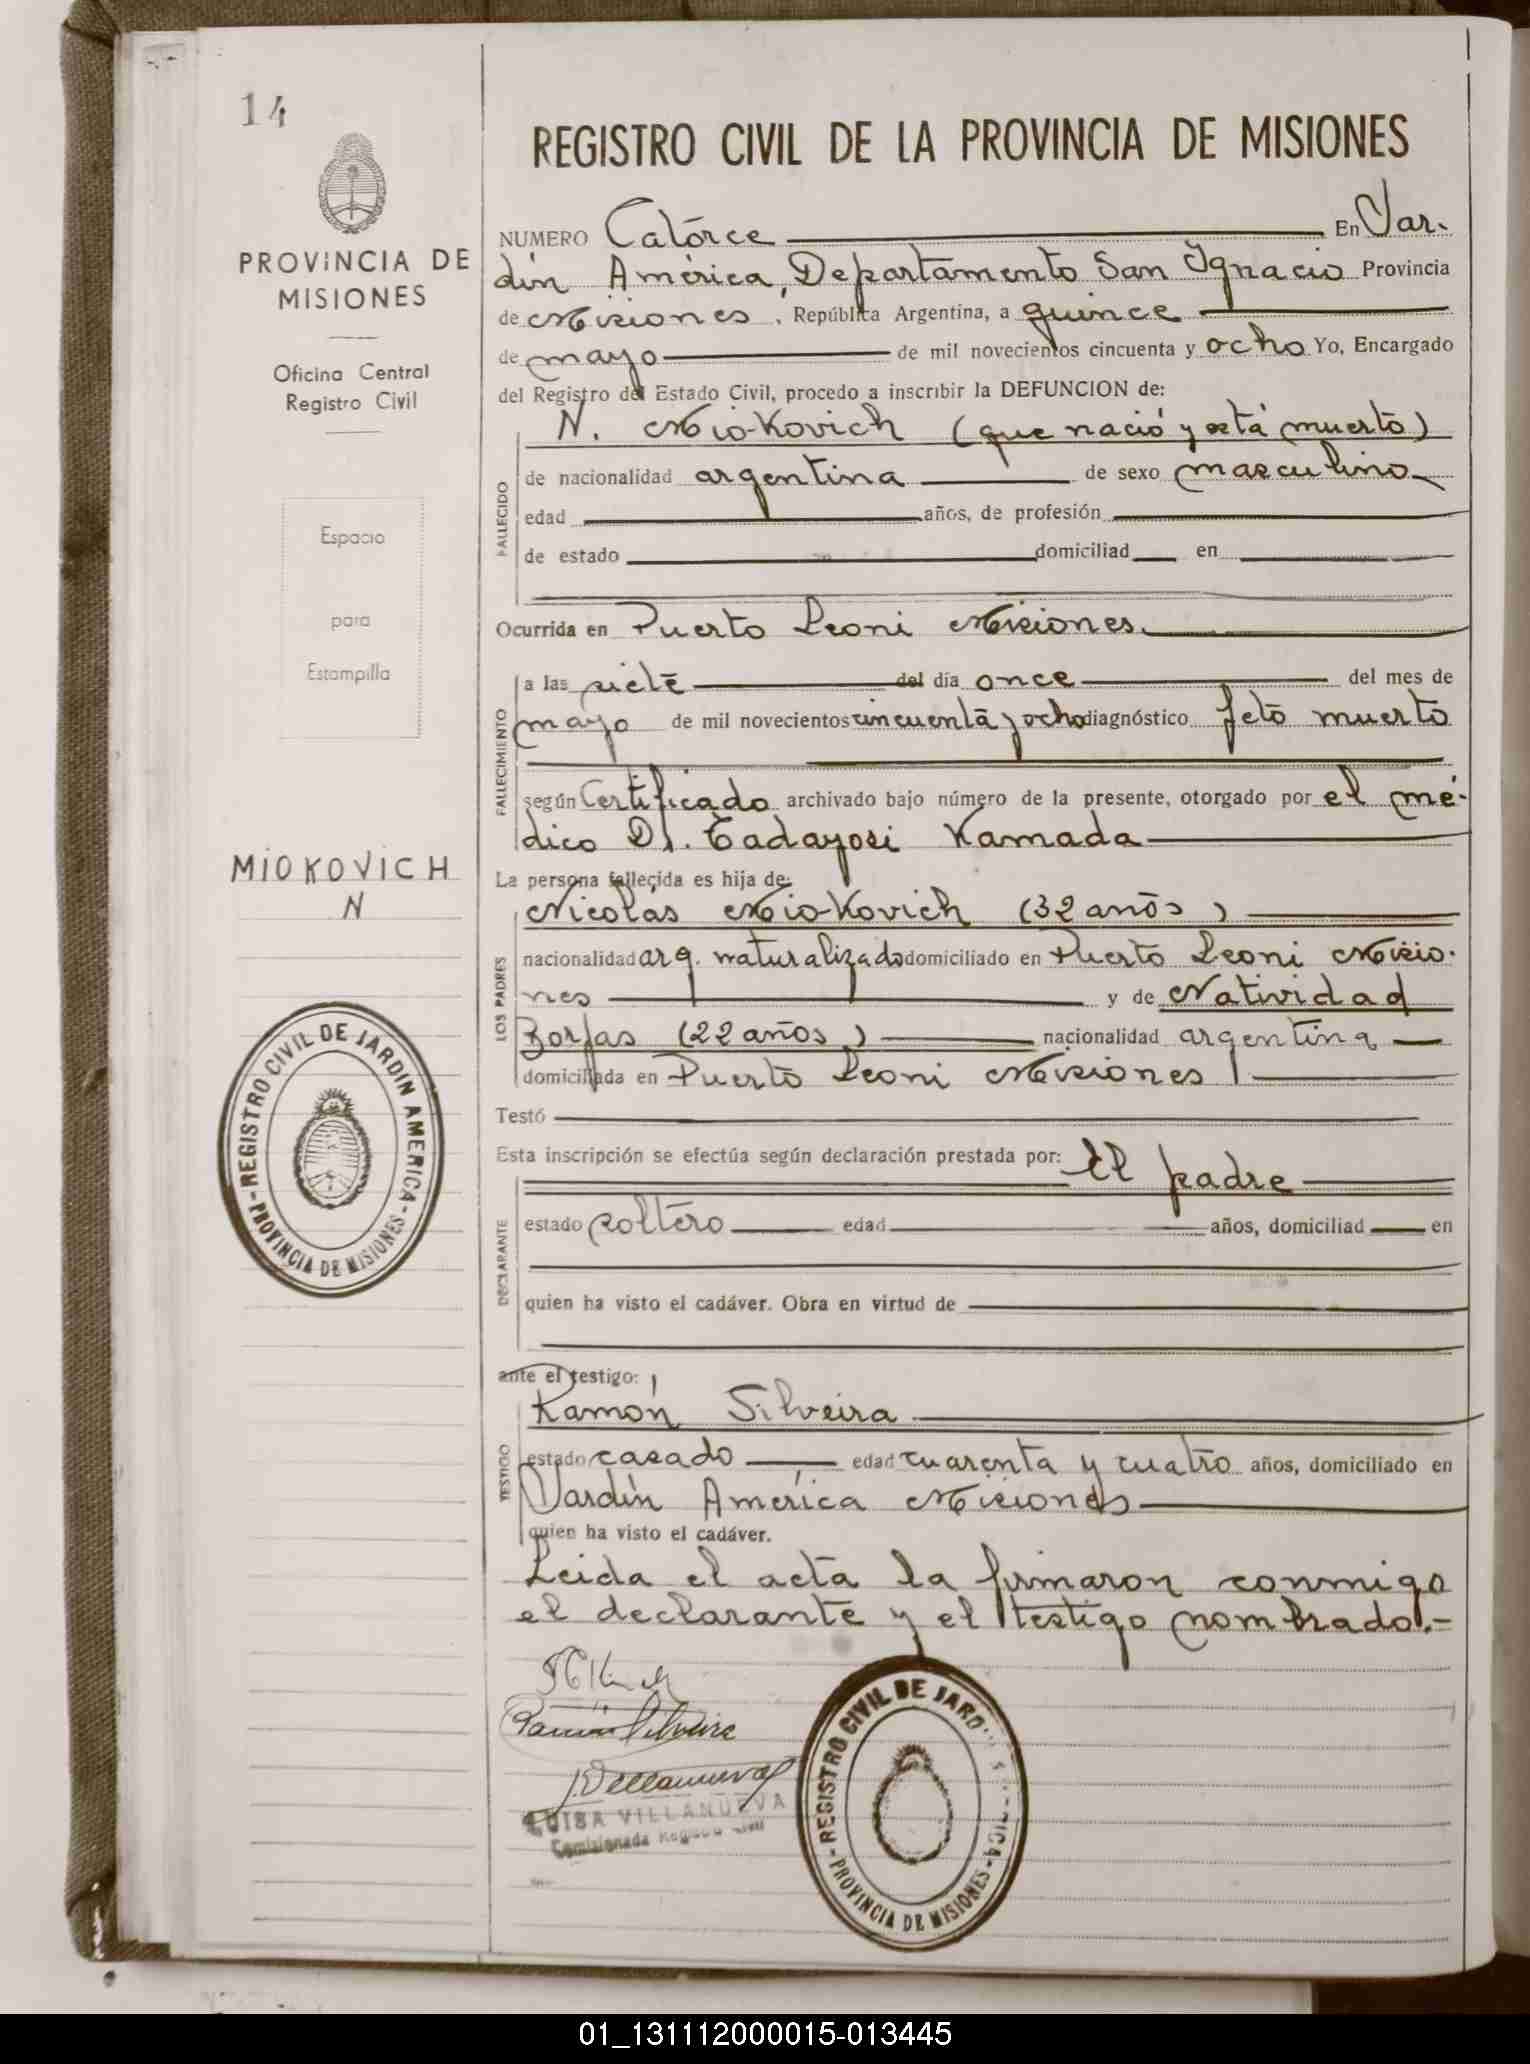 14
PROVINCIA DE
MISIONES
Oficina Central
Registro Civil
Espacio
para
Estampilla
MIOKOVICH
N
-REGISTRO CIVIL DE JARDIN AMERICA-
-PROVINCIA DE MISIONES-
REGISTRO CIVIL DE LA PROVINCIA DE MISIONES
NUMERO Catórce En Jar-
dín América, Departamento San Ignacio Provincia
de Misiones, República Argentina, a quince
de mayo de mil novecientos cincuenta y ocho Yo, Encargado
del Registro del Estado Civil, procedo a inscribir la DEFUNCION de:
FALLECIDO
N. Miokovich (que nació y está muerto)
de nacionalidad argentina de sexo masculino
edad años, de profesión
de estado domiciliad en
Ocurrida en Puerto Leoni Misiones
FALLECIMIENTO
a las siete del día once del mes de
mayo de mil novecientos cincuenta y ocho diagnóstico feto muerto
según Certificado archivado bajo número de la presente, otorgado por el mé-
dico Dr. Tadayosi Kamada
La persona fallecida es hija de:
LOS PADRES
Nicolás Miokovich (32 años)
nacionalidad arg. naturalizado domiciliado en Puerto Leoni Misio-
nes y de Natividad
Borjas (22 años) nacionalidad argentina
domiciliada en Puerto Leoni Misiones
Testó
Esta inscripción se efectúa según declaración prestada por: El padre
DECLARANTE
estado soltero edad años, domiciliad en
quien ha visto el cadáver. Obra en virtud de
ante el testigo:
TESTIGO
Ramón Silveira
estado casado edad cuarenta y cuatro años, domiciliado en
Jardín América Misiones
quien ha visto el cadáver.
Leida el acta la firmaron conmigo
el declarante y el testigo nombrado.-
Ramón Silveira
Villanueva
LUISA VILLANUEVA
Comisionada Registro Civil
-REGISTRO CIVIL DE JARD
-PROVINCIA DE MISIONES-
01_131112000015-013445